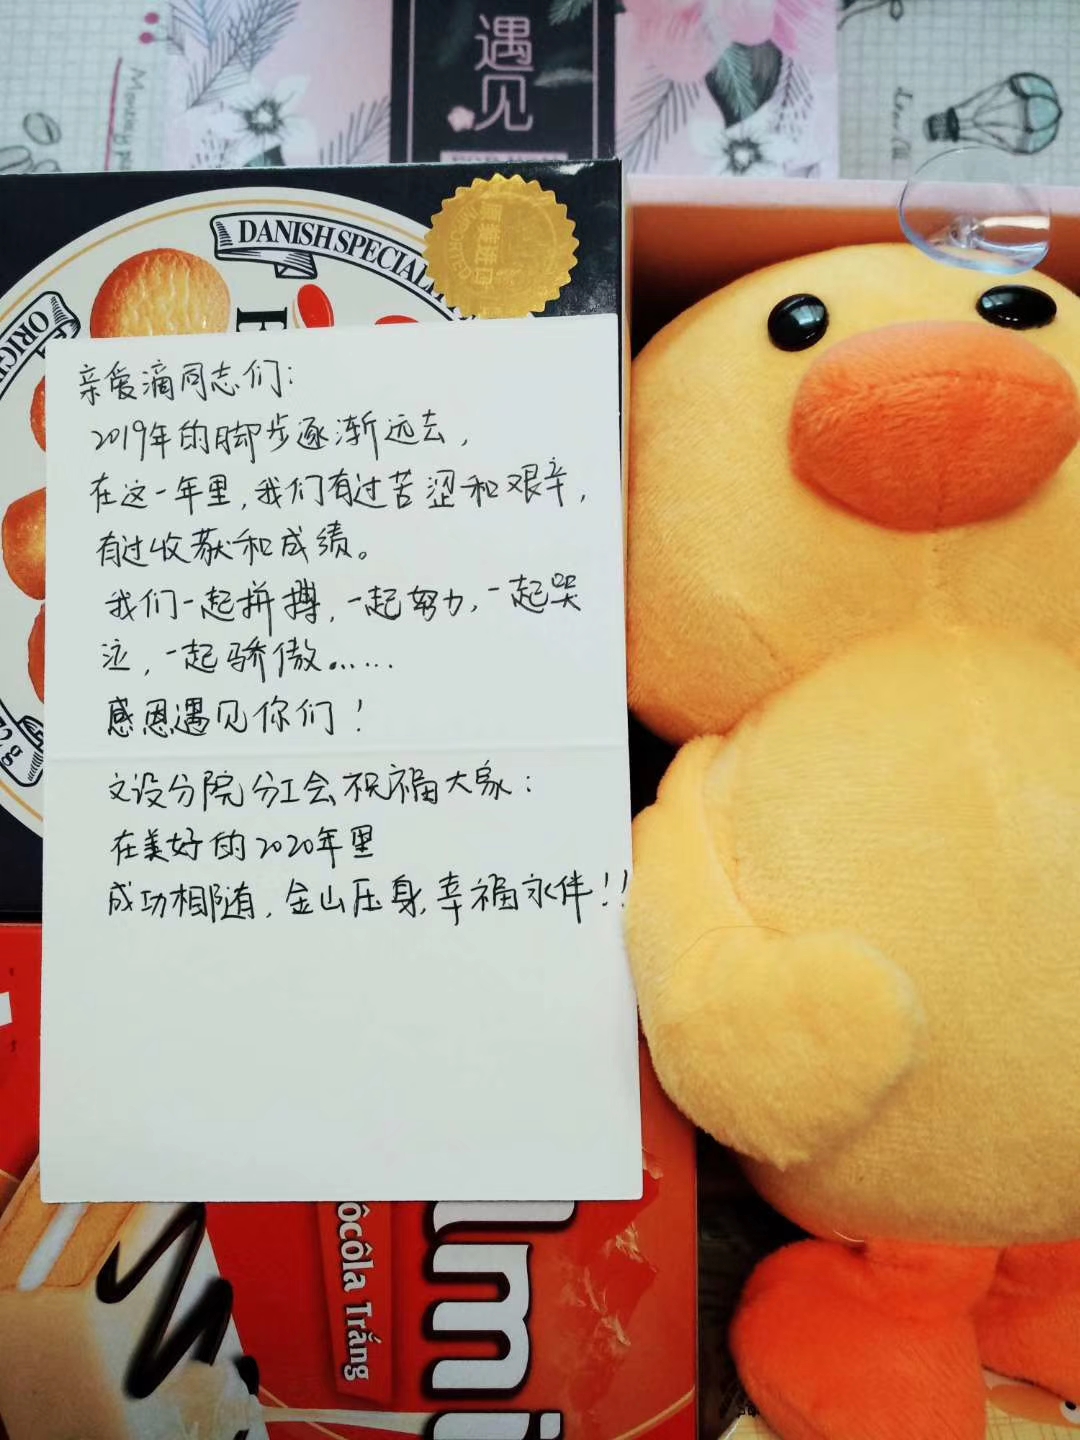 遇见
Monday
DANISH SPECIALI
ORIGI
亲爱滴同志们：
2019年的脚步逐渐远去，
在这一年里，我们有过苦涩和艰辛，
有过收获和成绩。
我们一起拼搏，一起努力，一起哭
泣，一起骄傲……
感恩遇见你们！
文设分院分工会祝福大家：
在美好的2020年里
成功相随，金山压身，幸福永伴！！
ôcôla Trắng